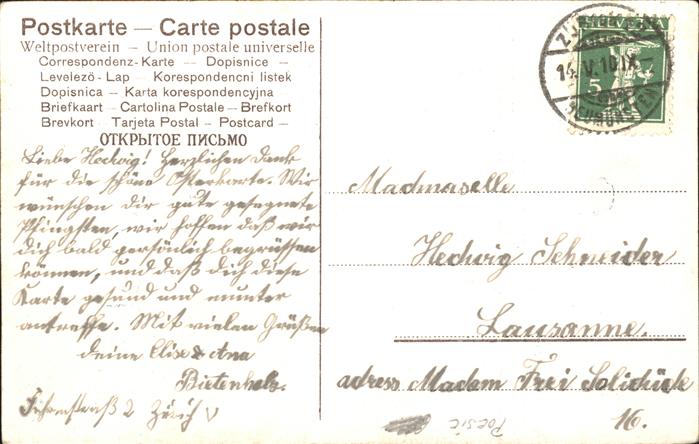 Postkarte — Carte postale
Weltpostverein — Union postale universelle
Correspondenz-Karte — Dopisnice —
Levelező-Lap — Korespondencni listek
Dopisnica — Karta korespondencyjna
Briefkaart — Cartolina Postale — Brefkort
Brevkort — Tarjeta Postal — Postcard —
ОТКРЫТОЕ ПИСЬМО
Liebe Hedwig! Herzlichen Dank
für die schöne Osterkarte. Wir
wünschen dir gute gesegnete
Pfingsten, wir hoffen daß wir
dich bald persönlich begrüssen
können, und daß dich diese
Karte gesund und munter
antreffe. Mit vielen Grüßen
deine Elise & Ana
Bietenholz.
2 Zürich V
HELVETIA
5
14.V.10.IX
NEUMÜNSTER
Madmaselle
Hedwig Schneider
Lausanne.
adress Madam Frei
16.
Poesie